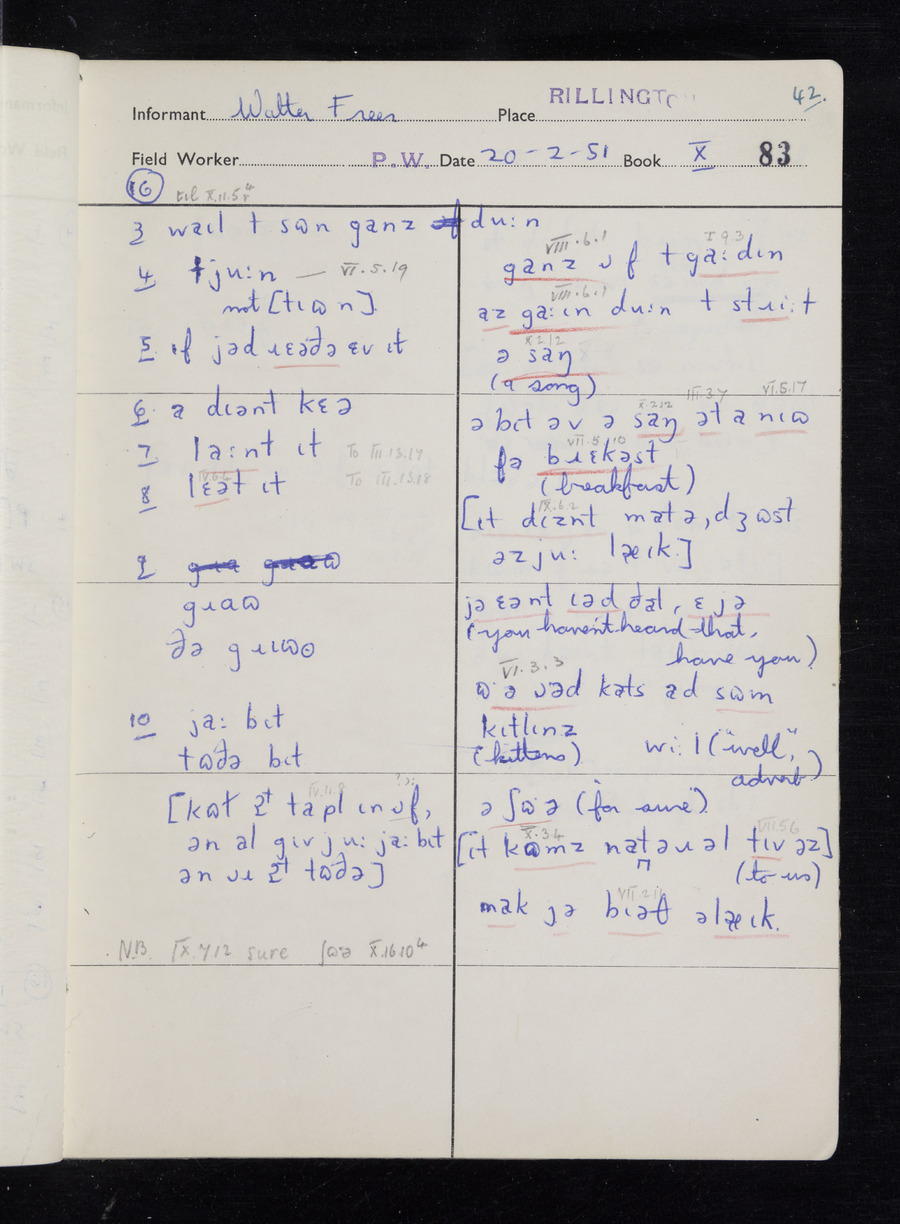 42.
RILLINGTO
Informant Walter Freer Place
Field Worker P.W. Date 20-2-51 Book X 83
16 til X.11.5
3 waɪl t sɷn ganz duːn
4 tjuːn — VI.5.19
not [tɪɷn]
5. ɪf jəd ɹɛəðə ɛv ɪt
6. a dɪənt kɛə
7 laːnt ɪt To III.13.17
8 lɛət ɪt To III.13.18
9
gɹaɷ
ðə gɹɪɷθ
10 jaː bɪt
tɷðə bɪt
[kɷt ət tapl ɪnʊf,
ən al gɪv juː jaː bɪt
ən ʊɪ ət tɷðə]
N.B. IX.7.12 sure ʃɷə X.16.10⁴
VIII.6.1 I 9 3
ganz ʊf t gaːdɪn
VIII.6.1
az gaːɪn duːn t stɹiːt
X 2 12
ə saŋ
(a song)
X.2.12 III.3.7 VI.5.17
ə bɪt əv ə saŋ ət a nɪɷ
VII.5.10
fə bɹɛkəst
(breakfast)
IX.6.2
[ɪt dɪznt matə, dʒɷst
əz juː læɪk.]
jə ɛənt ɪəd ðat, ɛ jə
(you haven't heard that,
have you)
VI.3.3
ɷə ʊəd kats ad sɷm
kɪtlɪnz
(kittens) wiːl ("well",
adverb)
ə ʃɷə (for sure)
X.3.4 VII.5.6
[ɪt kɷmz natəɹəl tɪv əz]
(to us)
VII.2.11
mak jə bɪət əlæɪk.